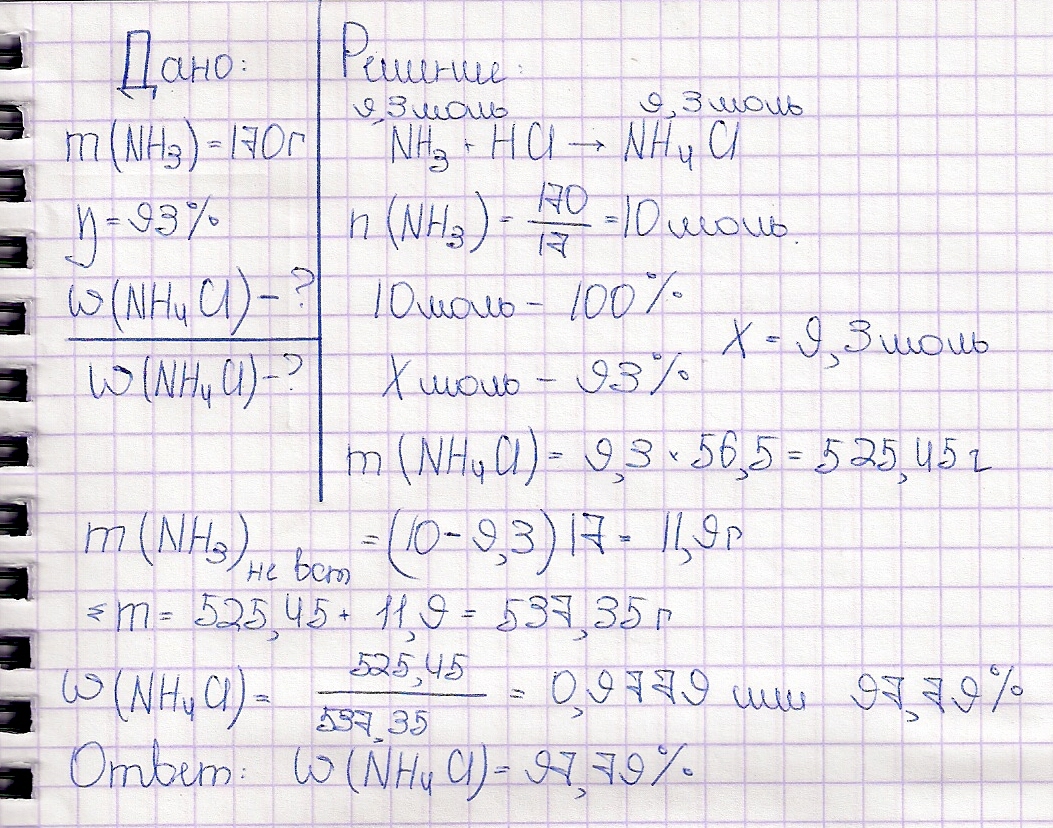 Дано:
m(NH₃)=170г
η=93%
ω(NH₄Cl)-?
ω(NH₄Cl)-?
Решение:
9,3моль 9,3моль
NH₃+HCl→NH₄Cl
n(NH₃)=170/17=10моль.
10моль-100%
Xмоль-93%
X=9,3моль
m(NH₄Cl)=9,3·56,5=525,45г
m(NH₃)не вст=(10-9,3)17=11,9г
≤m=525,45+11,9=537,35г
ω(NH₄Cl)=525,45/537,35=0,9779 или 97,79%
Ответ: ω(NH₄Cl)=97,79%